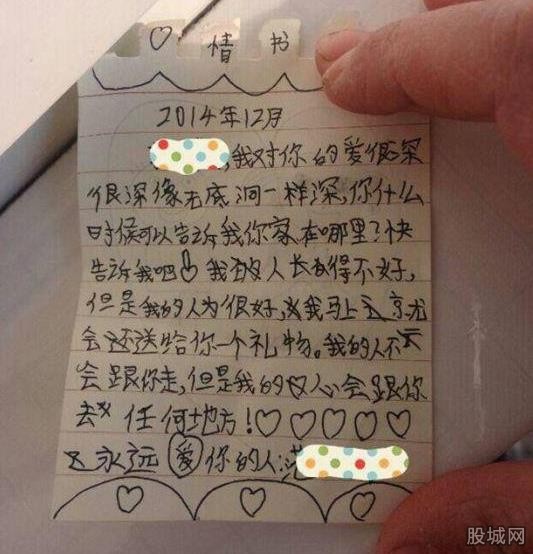 ♡ 情 书
2014年12月
,我对你的爱很深
很深像无底洞一样深,你什么
时候可以告诉我你家在哪里?快
告诉我吧 我的人长得不好,
但是我的人为很好,我马上
会还送给你一个礼物。我的人不
会跟你走,但是我的心会跟你
去 任何地方!♡♡♡♡♡
永远 爱 你的人:
♡ ♡ ♡
股城网